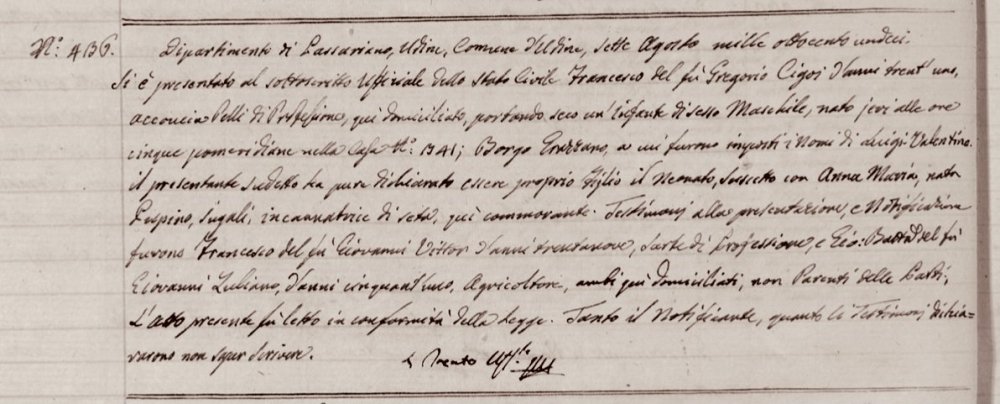 N.° 436.
Dipartimento di Passariano, Udine, Comune d'Udine, sette Agosto mille ottocento undeci.
Si è presentato al sottoscritto Uffiziale dello Stato Civile Francesco del fù Gregorio Cigoi d'anni trent'uno,
acconcia Pelli di Professione, quì domiciliato, portando seco un'Infante di sesso Maschile, nato jeri alle ore
cinque pomeridiane nella Casa N.° 1341; Borgo Grazzano, a cui furono imposti i Nomi di Luigi Valentino.
il presentante sudetto ha pure dichiarato essere proprio Figlio il Neonato, con Anna Maria, nata
jugali, incannatrice di seta, quì commorante. Testimonj alla presentazione, e Notificazione
furono Francesco del fù Giovanni d'anni trentanove, Sarte di Professione, e Gio: Batta del fù
Giovanni Zuliano, d'anni cinquant'uno, Agricoltore, ambi quì domiciliati, non Parenti delle Parti;
L'atto presente fù letto in conformità della Legge. Tanto il Notificante, quanto li Testimonj dichia=
rarono non saper scrivere.
Trento Uff.le